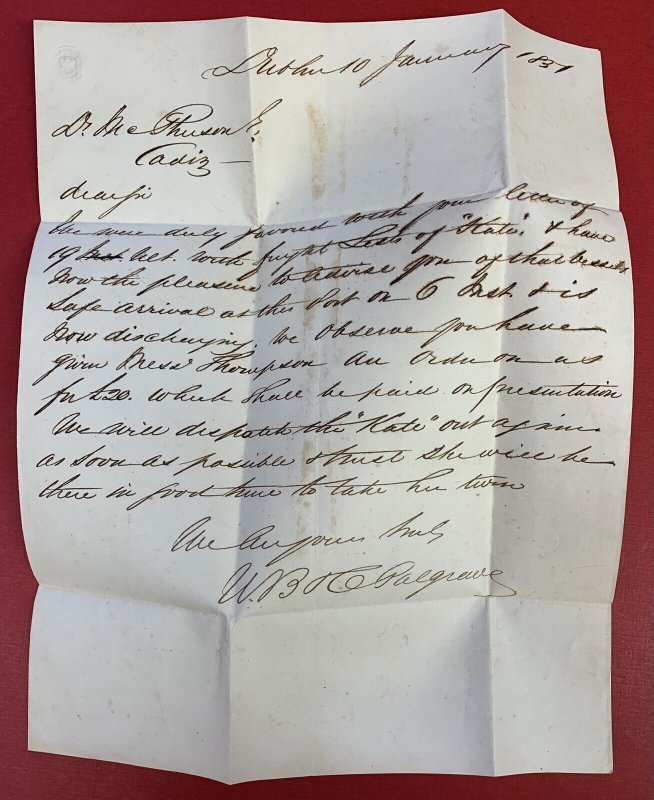 Dublin 10 January 1851
D. McPherson Esq.
Cadiz
dear Sir
We were duly favored with your letter of
19 Ult. with freight Lists of "Kate" & have
now the pleasure to advise you of that vessels
safe arrival at this Port on 6 Inst & is
now discharging, We observe you have
given Messrs Thompson an order on us
for £20. which shall be paid on presentation
We will dispatch the "Kate" out again
as soon as possible & trust she will be
there in good time to take her turn
We are yours truly
W. B & C Palgrave